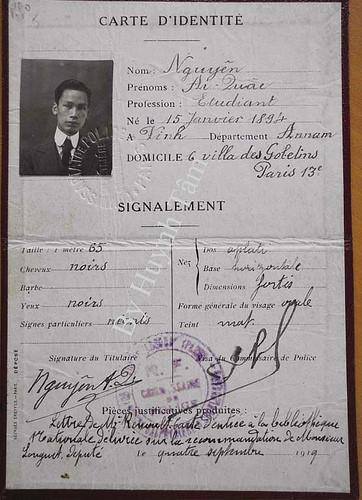 CARTE D'IDENTITÉ
Nom: Nguyễn
Prénoms: Ái-Quấc
Profession: Etudiant
Né le 15 Janvier 1894
A Vinh Département Annam
DOMICILE 6 villa des Gobelins
Paris 13e
SIGNALEMENT
Taille: 1 mètre 65
Cheveux noirs
Barbe
Yeux noirs
Signes particuliers
Nez
Dos aplati
Base horizontale
Dimensions fortis
Forme générale du visage ovale
Teint mat.
Signature du Titulaire
Visa du Commissaire de Police
Pièces justificatives produites:
Lettre de Mr Renoult. Carte d'entrée à la bibliothèque
Nationale délivrée sur la recommandation de Monsieur
Longuet, député
le quatre septembre 1919
By Huynh Tam